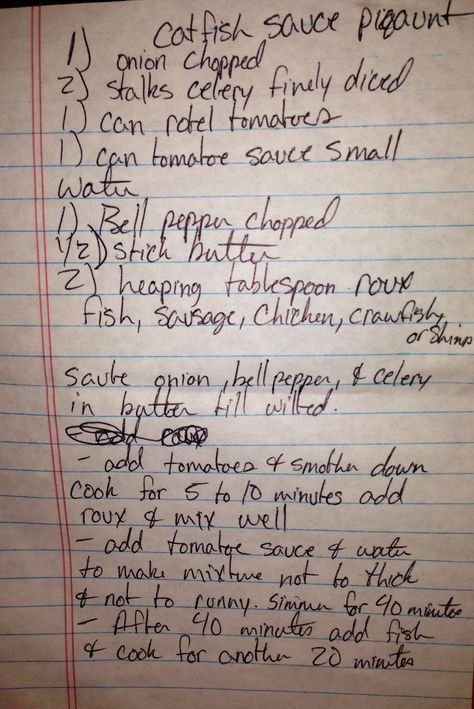 catfish sauce piqaunt
1) onion chopped
2) stalks celery finely diced
1) can rotel tomatoes
1) can tomatoe sauce small
water
1) Bell pepper chopped
1/2) stick butter
2) heaping tablespoon roux
fish, sausage, chicken, crawfish,
or shrimp
saute onion, bell pepper, & celery
in butter till wilted.
- add tomatoes & smother down
cook for 5 to 10 minutes add
roux & mix well
- add tomatoe sauce & water
to make mixture not to thick
& not to runny. Simmer for 40 minutes
- After 40 minutes add fish
& cook for another 20 minutes